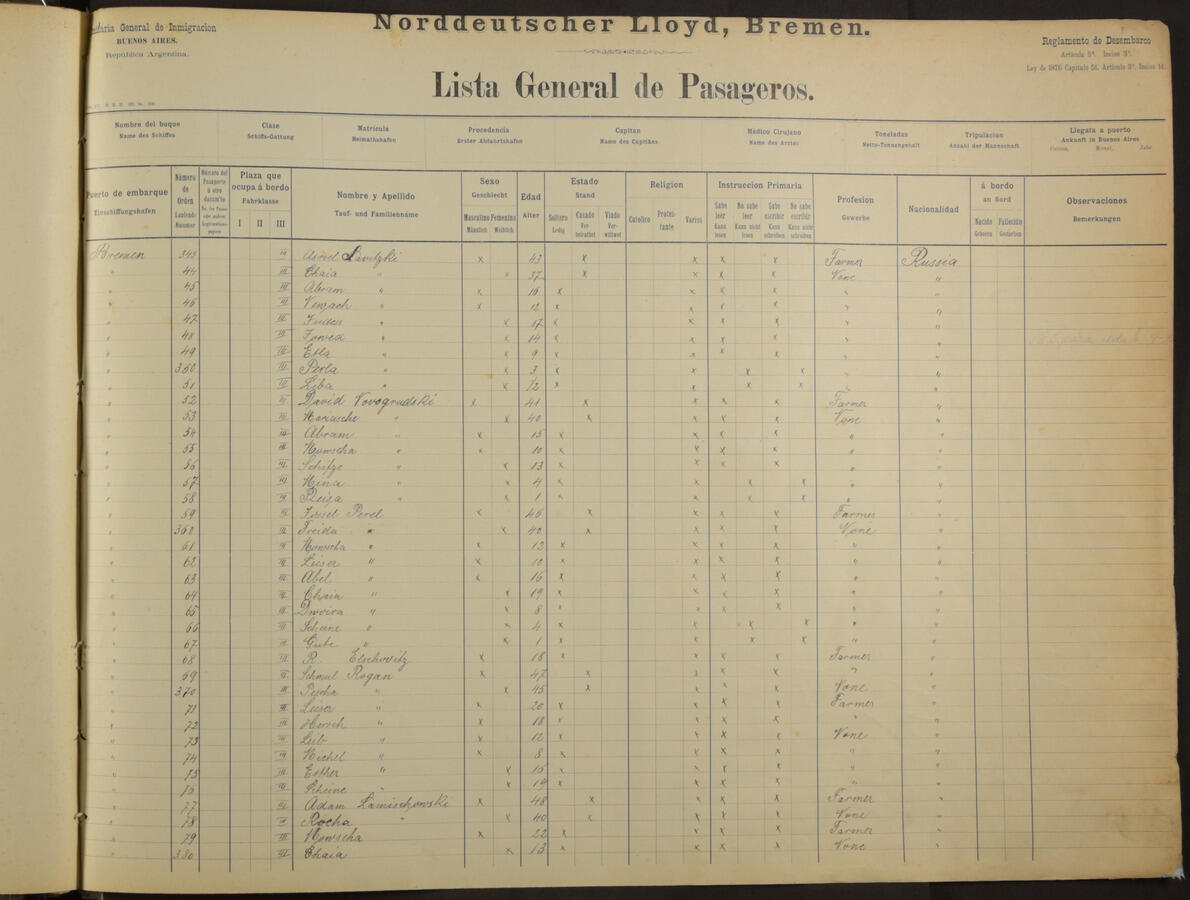 Norddeutscher Lloyd, Bremen.
General de Inmigracion
BUENOS AIRES.
República Argentina.
Reglamento de Desembarco
Artículo 5º. Inciso 3º.
Ley de 1876 Capítulo 51. Artículo 3º. Inciso 11.
Lista General de Pasageros.
Nombre del buque Clase Matricula Procedencia Capitan Medico Cirujano Toneladas Tripulacion Llegata a puerto
Name des Schiffes Schiffs-Gattung Heimathshafen Erster Abfahrtshafen Name des Capitäns Name des Arztes Netto-Tonnengehalt Anzahl der Mannschaft Ankunft in Buenos Aires
Puerto de embarque Número de Orden Plaza que ocupa á bordo Nombre y Apellido Sexo Edad Estado Religion Instruccion Primaria Profesion Nacionalidad á bordo Observaciones
Einschiffungshafen Laufende Nummer Fahrklasse Tauf- und Familienname Geschlecht Alter Stand Gewerbe an Bord Bemerkungen
I II III Masculino Männlich Femenino Weiblich Soltero Ledig Casado Verheirathet Viudo Verwittwet Catolico Protestante Varios Sabe leer Kann lesen No sabe leer Kann nicht lesen Sabe escribir Kann schreiben No sabe escribir Kann nicht schreiben Nacido Geboren Fallecido Gestorben
Bremen 343 III Lavitzki x 43 x x x x Farmer Russia
" 44 III Chaia " x 37 x x x x None "
" 45 III Abram " x 16 x x x x " "
" 46 III " x 12 x x x x " "
" 47 III " x 17 x x x x " "
" 48 III " x 14 x x x x " "
" 49 III Etla " x 9 x x x x " "
" 350 III Perla " x 3 x x x x " "
" 51 III Liba " x 1/2 x x x x " "
" 52 III David Novogradski x 41 x x x x Farmer "
" 53 III " x 40 x x x x None "
" 54 III Abram " x 15 x x x x " "
" 55 III Mowscha " x 10 x x x x " "
" 56 III " x 13 x x x x " "
" 57 III Mina " x 4 x x x x " "
" 58 III " x 1 x x x x " "
" 59 III Perel x 46 x x x x Farmer "
" 360 III Freida " x 40 x x x x None "
" 61 III Mowscha " x 12 x x x x " "
" 62 III Leiser " x 10 x x x x " "
" 63 III Abel " x 16 x x x x " "
" 64 III Chaia " x 19 x x x x " "
" 65 III Dweira " x 8 x x x x " "
" 66 III Scheine " x 4 x x x x " "
" 67 III Gute " x 1 x x x x " "
" 68 III R. Elschovitz x 18 x x x x Farmer "
" 69 III Schmul Rogan x 47 x x x x " "
" 370 III Pescha " x 45 x x x x None "
" 71 III Leiser " x 20 x x x x Farmer "
" 72 III Hirsch " x 18 x x x x " "
" 73 III Leib " x 12 x x x x None "
" 74 III Michel " x 8 x x x x " "
" 75 III Esther " x 16 x x x x " "
" 76 III Scheine " x 19 x x x x " "
" 77 III Adam Lamischowski x 48 x x x x Farmer "
" 78 III Rocha " x 40 x x x x None "
" 79 III Mowscha x 22 x x x x Farmer "
" 380 III Chaia x 13 x x x x None "